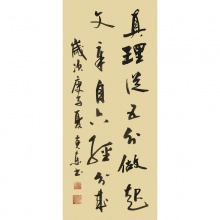 真理從五倫做起
文章自六經分來
歲次庚寅夏書